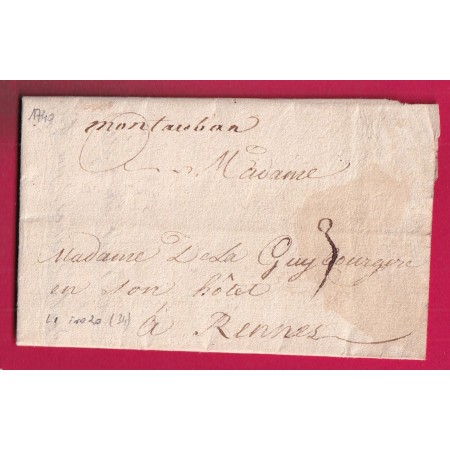 1740
montauban
Madame
Madame De La Guybourgere
3
en son hôtel
à Rennes